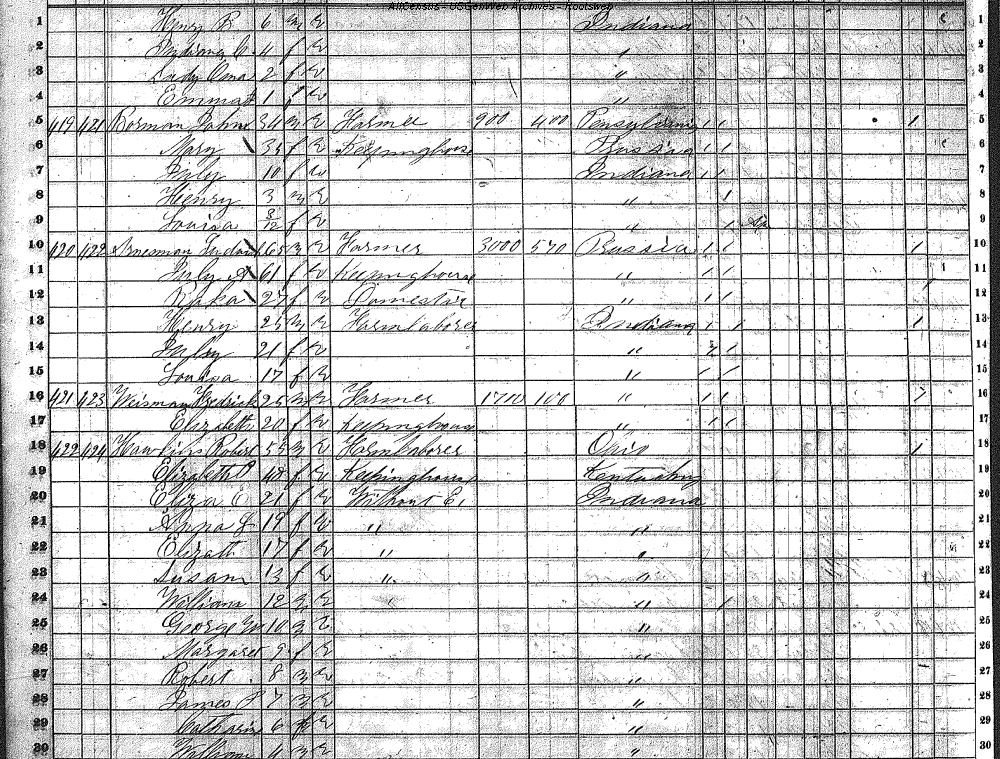 AllCensus - USGenWeb Archives - Rootsweb
1 Henry B 6 m W Indiana 1
2 Indiana C. 4 f W " 2
3 Lady Oma 2 f W " 3
4 Emma 1 f W " 4
5 419 421 Borman John 34 m W Farmer 900 400 5
6 Mary 35 f W Keepinghouse Prussia 6
7 July 10 f W Indiana 7
8 Henry 3 m W " 8
9 Louisa 8/12 f W " 9
10 420 422 65 m W Farmer 3000 570 Prussia 10
11 July A 61 f W Keepinghouse " 11
12 27 f W Domestic " 12
13 Henry 25 m W Farmlaborer Indiana 13
14 July 21 f W " 14
15 Louisa 17 f W " 15
16 421 423 Weisman Fredrick 25 m W Farmer 100 " 16
17 Elizabeth 20 f W Keepinghouse " 17
18 422 424 Hawkins Robert 55 m W Farmlaborer Ohio 18
19 48 f W Keepinghouse Kentucky 19
20 Eliza C 21 f W Without E. Indiana 20
21 Anna L 19 f W " " 21
22 17 f W " " 22
23 Susan 13 f W " " 23
24 William 12 m W " " 24
25 George W 10 m W " 25
26 Margaret 9 f W " 26
27 Robert 8 m W " 27
28 James 7 m W " 28
29 Catharin 6 f W " 29
30 William 4 m W " 30